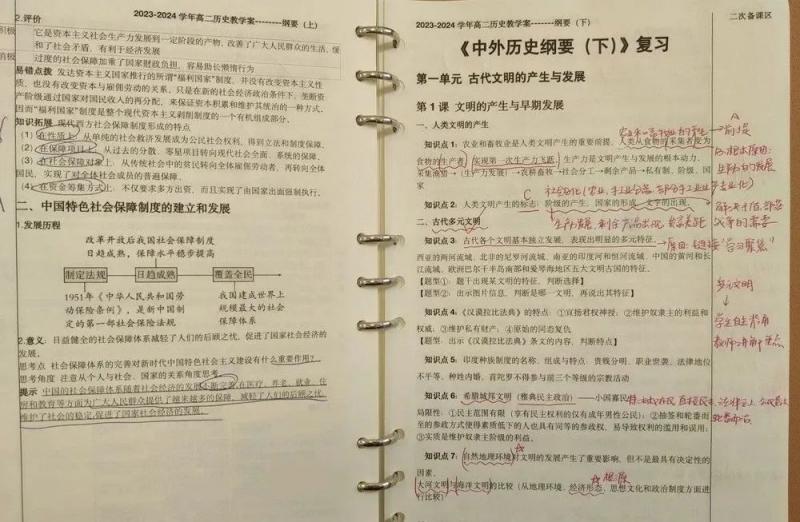 2023-2024学年高二历史教学案--------纲要（上）
2.评价
它是资本主义社会生产力发展到一定阶段的产物，改善了广大人民群众的生活，缓
和了社会矛盾，有利于经济发展
过度的社会保障加重了国家财政负担，容易助长懒惰行为
易错点拨 发达资本主义国家推行的所谓“福利国家”制度，并没有改变资本主义性
质，也没有改变资本与雇佣劳动的关系，只是在新的社会经济政治条件下，垄断资
产阶级通过国家对国民收入的再分配，来保证资本积累和维护其统治的一种方式，
因而“福利国家”制度是整个现代资本主义剥削制度的一个有机组成部分。
知识拓展 现代西方社会保障制度形成的特点
（1）在性质上，从单纯的社会救济发展成为公民社会权利，得到立法和制度保障。
（2）在保障项目上，从过去的分散、零星项目转向现代社会全面、系统的保障。
（3）在社会保障对象上，从传统社会中的贫民转向全体雇佣劳动者，再转向全体
国民，实现了对全体社会成员的普遍保障。
（4）在资金筹集方式上，不仅要求多方出资，而且实现了由国家出面强制执行。
二、中国特色社会保障制度的建立和发展
1.发展历程
改革开放后我国社会保障制度
日趋成熟，保障水平稳步提高
制定法规 日趋成熟 覆盖全民
1951年《中华人民共和国劳
动保险条例》，是新中国制
定的第一部社会保险法规
我国建成世界上
规模最大的社会
保障体系
2.意义：日益健全的社会保障体系减轻了人们的后顾之忧，促进了国家社会经济的
发展。
思考点 社会保障体系的完善对新时代中国特色社会主义建设有什么重要作用？
思考角度 注意从个人与社会、国家的关系角度思考。
提示 中国的社会保障体系随着社会经济的发展不断完善，在医疗、养老、就业、住
房和教育等方面为广大人民群众提供了越来越多的保障，减轻了人们的后顾之忧，
维护了社会的稳定，促进了国家社会经济的发展。
2023-2024学年高二历史教学案-------纲要（下）
二次备课区
《中外历史纲要（下）》复习
第一单元 古代文明的产生与发展
第1课 文明的产生与早期发展
一、人类文明的产生
知识点1：农业和畜牧业是人类文明产生的重要前提，人类从食物的采集者变为
食物的生产者，实现第一次生产力飞跃。生产力是文明产生与发展的根本动力。
采集渔猎→（生产力发展）→农耕畜牧→社会分工→剩余产品→私有制、阶级、国
家
知识点2：人类文明产生的标志：阶级的产生、国家的形成、文字的出现。
二、古代多元文明
知识点3：古代各个文明基本独立发展，表现出明显的多元特征。
→原因：链接“学习聚焦”
西亚的两河流域、北非的尼罗河流域、南亚的印度河和恒河流域、中国的黄河和长
江流域、欧洲巴尔干半岛南部和爱琴海地区五大文明古国的特征。
【题型①：题干出现某文明的特征，判断选择】
【题型②：出示图片信息，判断是哪一文明，再说出其特征】
多元文明
↓
学生自主考有
教师讲解重点
知识点4：《汉谟拉比法典》的特点：①宣扬君权神授；②维护奴隶主的利益和
权威；③维护私有财产；④原始的同态复仇
【题型：出示《汉谟拉比法典》条文的内容，判断特点】
知识点5：印度种族制度的名称、组成与特点：贵贱分明、职业世袭、法律地位
不平等、种姓内婚、首陀罗不得参与前三个等级的宗教活动
知识点6：希腊城邦文明（雅典民主政治）——小国寡民
局限性：①民主范围有限（享有民主权利的仅有成年男性公民）；②抽签和轮番而
至的参政方式使得素质低下的人也具有同等的参政权，易导致权利的滥用和误用；
③实质是维护奴隶主阶级的利益。
知识点7：自然地理环境对文明的发展产生了重要影响，但不是最具有决定性的
因素。
根源
大河文明与海洋文明的比较（从地理环境、经济形态、思想文化和政治制度方面进
行比较）